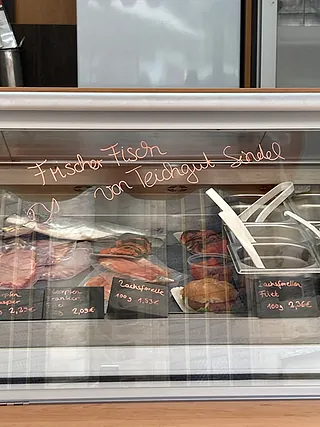 Frischer Fisch
von Teichgut Sindel
2,29€
2,09€
Lachsforelle
100g 1,53€
Lachsforellen
Filet
100g 2,36€